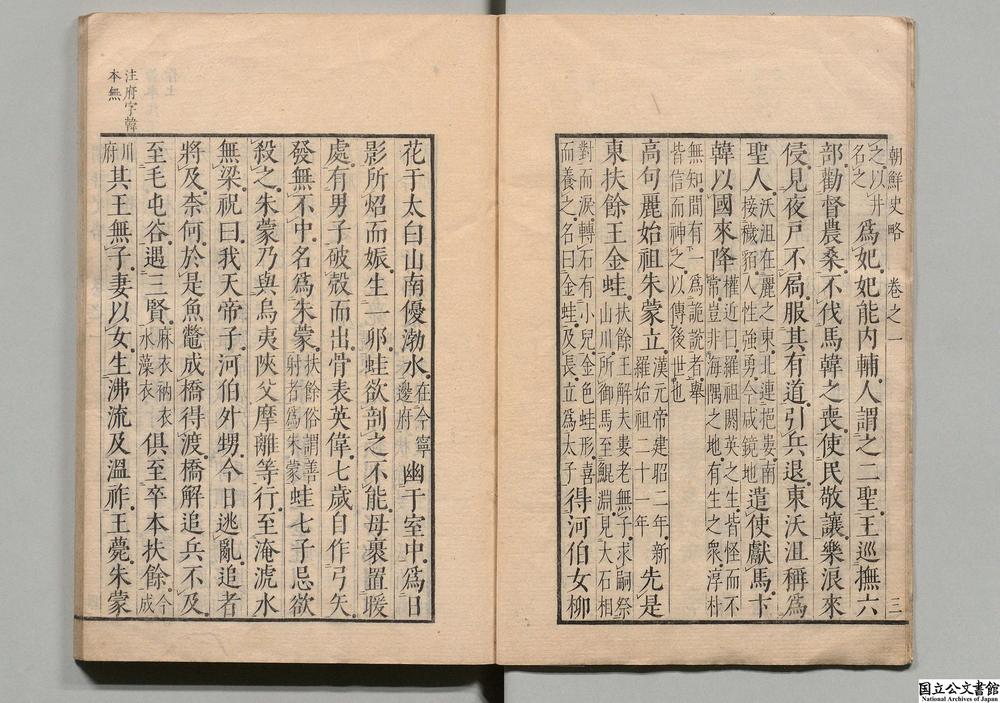 朝鮮史略 卷之一 三
之以井名之爲妃妃能内輔人謂之二聖王巡撫六
部勸督農桑不伐馬韓之喪使民敬讓樂浪來
侵見夜戸不扃服其有道引兵退東沃沮稱爲
聖人沃沮在麗之東北連挹婁南接穢貊人性強勇今咸鏡地遣使獻馬卞
韓以國來降權近曰羅祖閼英之生皆怪而不常豈非海隅之地有生之衆淳朴
無知間有一爲詭説者擧皆信而神之以傳後世也
高句麗始祖朱蒙立漢元帝建昭二年新羅始祖二十一年先是
東扶餘王金蛙扶餘王解夫婁老無子求嗣祭山川所御馬至鯤淵見大石相
對而淚轉石有小兒金色蛙形喜而養之名曰金蛙及長立爲太子得河伯女柳
花于太白山南優渤水在今寧邊府幽于室中爲日
影所炤而娠生一卵蛙欲剖之不能母裹置暖
處有男子破殻而出骨表英偉七歳自作弓矢
發無不中名爲朱蒙扶餘俗謂善射者爲朱蒙蛙七子忌欲
殺之朱蒙乃與烏夷陜父摩離等行至淹淲水
無梁祝曰我天帝子河伯外甥今日逃亂追者
將及柰何於是魚鼈成橋得渡橋解追兵不及
至毛屯谷遇三賢麻衣衲衣水藻衣俱至卒本扶餘今成
川府其王無子妻以女生沸流及溫祚王薨朱蒙
注府字韓
本無
国立公文書館
National Archives of Japan